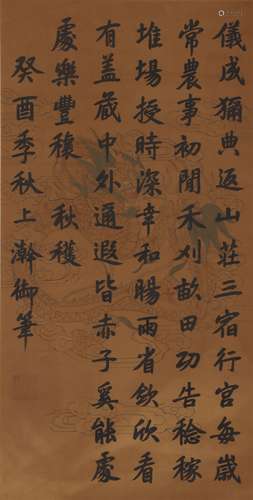 儀成獮典返山莊三宿行宮每歲
常農事初聞禾刈畝田功告稔稼
堆場授時深幸和暘雨省斂欣看
有蓋藏中外通遐皆赤子奚能處
處樂豐穰 秋穫
癸酉季秋上澣御筆